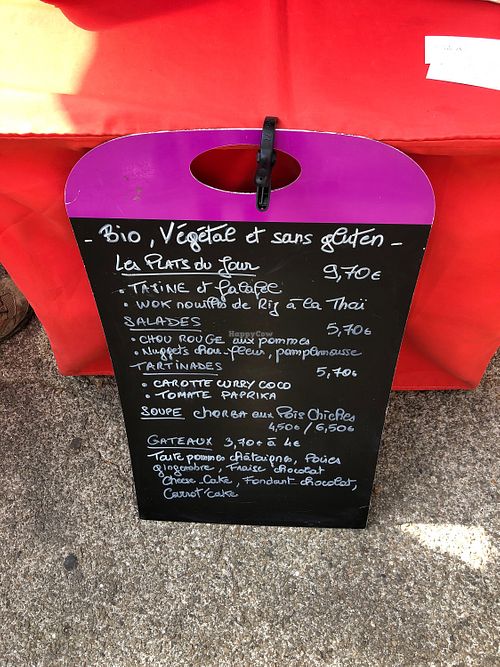 - Bio, Végétal et sans gluten -
Les PLATS du Jour 9,70€
• TAJINE et falafel
• WOK nouilles de Riz à la Thaï
SALADES 5,70€
• CHOU ROUGE aux pommes
• Nuggets chou-fleur, pamplemousse
TARTINADES 5,70€
• CAROTTE CURRY COCO
• TOMATE PAPRIKA
SOUPE CHORBA aux Pois Chiches
4,50€ / 6,50€
GATEAUX 3,70€ à 4€
Tarte pommes châtaignes, Poires
gingembre, Fraise chocolat
Cheese-Cake, Fondant chocolat,
Carrot'cake
HappyCow